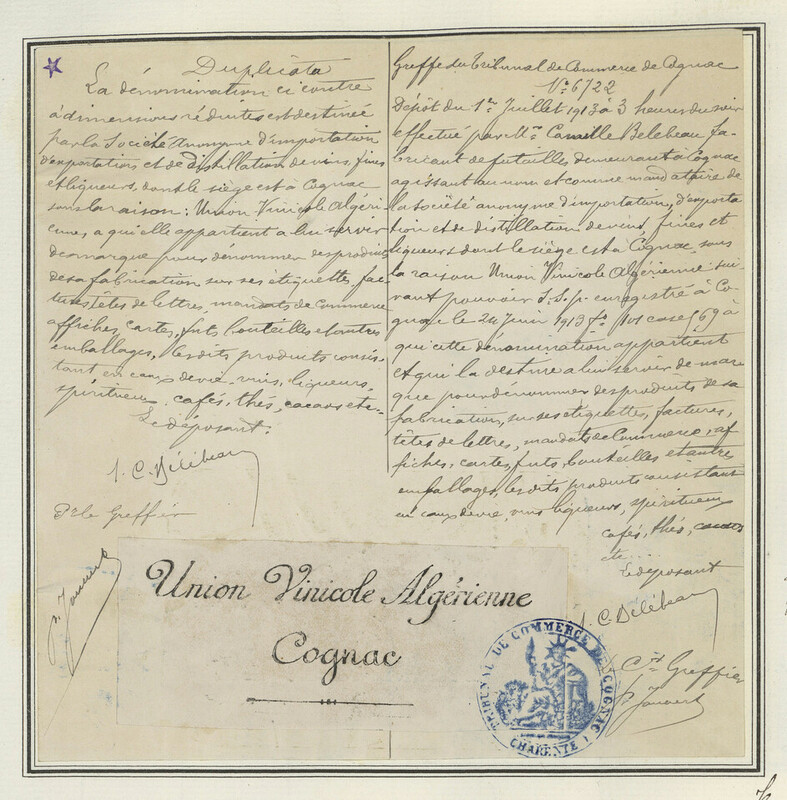 Duplicata
La dénomination ci contre
à dimensions réduites est destinée
par la Société Anonyme d'importation
d'exportation et de distillation de vins, fines
et liqueurs, dont le siège est à Cognac
sous la raison: Union Vinicole Algéri
enne, à qui elle appartient à lui servir
de marque pour dénommer des produits
de sa fabrication, sur ses étiquettes, fac-
tures, têtes de lettres, mandats de commerce
affiches, cartes, fûts, bouteilles et autres
emballages, les dits produits consis-
tant en eaux de vie, vins, liqueurs,
spiritueux, cafés, thés, cacaos etc.
Le déposant:
C. Délébeau
Pr le Greffier
P. Jauvert
Greffe du Tribunal de Commerce de Cognac
No 6722
Dépôt du 1er Juillet 1913 à 3 heures du soir
effectué par Mr Camille Belebeau fa-
bricant de futailles demeurant à Cognac
agissant au nom et comme mandataire de
la société anonyme d'importation, d'exporta
tion et de distillation de vins, fines et
liqueurs dont le siège est à Cognac, sous
la raison Union Vinicole Algérienne sui-
vant pouvoir S.S.p. enregistré à Co-
gnac le 24 Juin 1913 fo 101 case 569 à
qui cette dénomination appartient
et qui la destine à lui servir de mar
que pour dénommer des produits de sa
fabrication, sur ses étiquettes, factures,
têtes de lettres, mandats de Commerce, af
fiches, cartes, fûts, bouteilles et autres
emballages, les dits produits consistant
en eaux de vie, vins liqueurs, spiritueux
cafés, thés, cacaos
etc...
Le déposant
C. Délébeau
Cis Greffier
P. Jauvert
Union Vinicole Algérienne
Cognac
TRIBUNAL DE COMMERCE DE COGNAC
CHARENTE